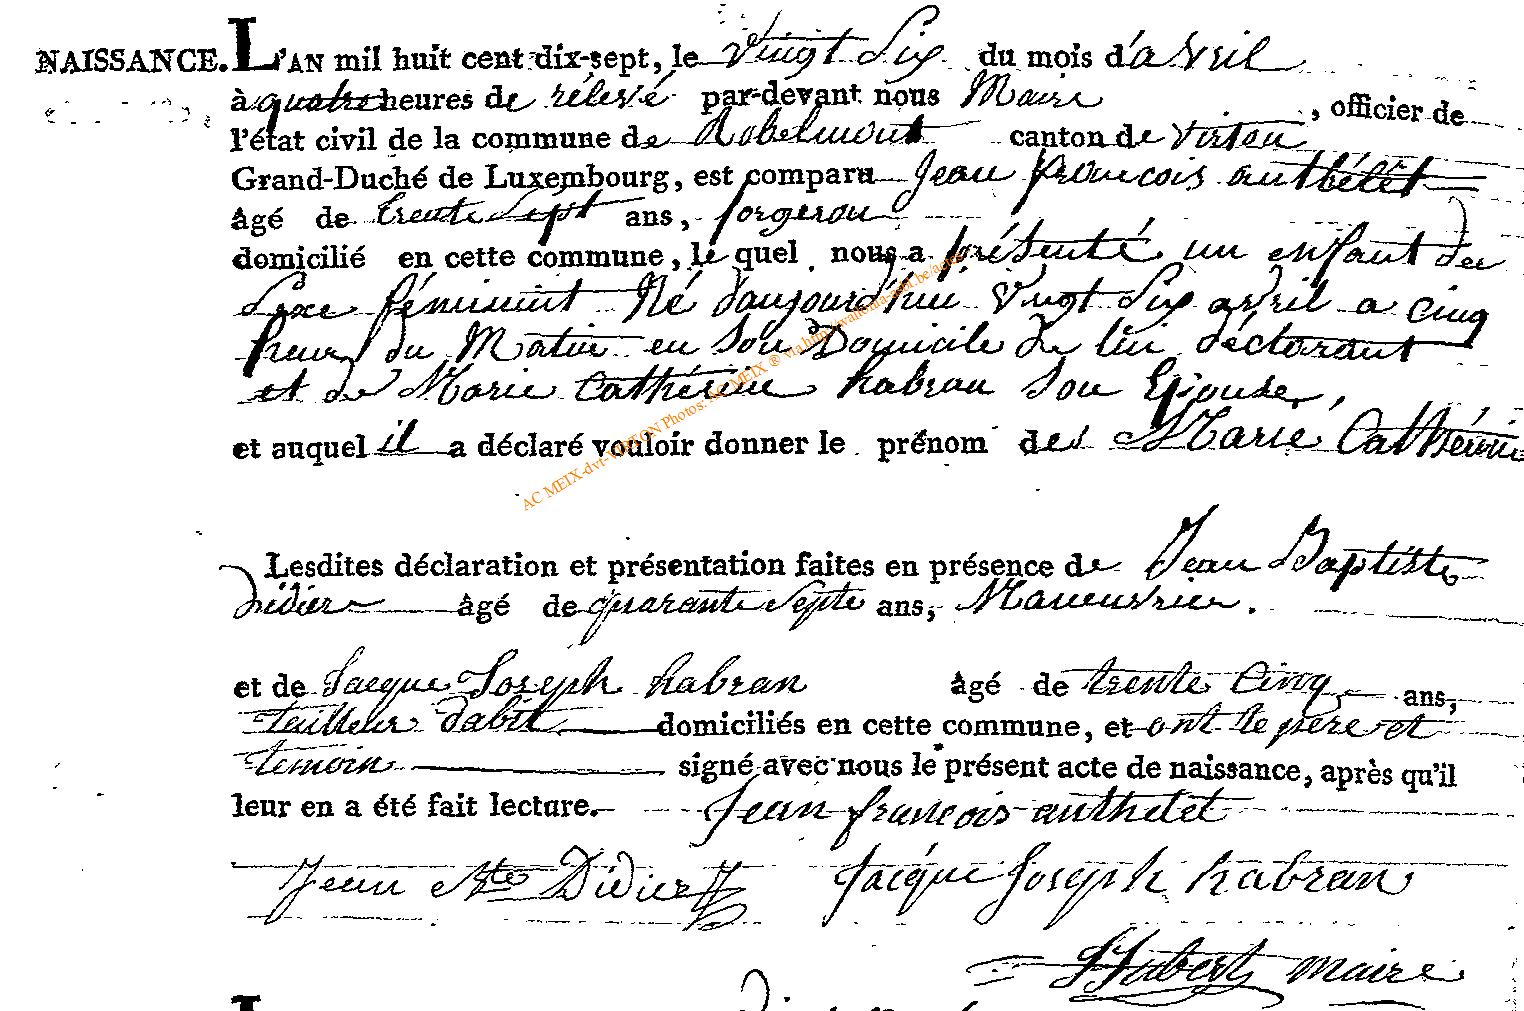 NAISSANCE. L'AN mil huit cent dix-sept, le Vingt Six du mois d'avril
à quatre heures de rélevé par-devant nous Maire , officier de
l'état civil de la commune de Robelmont canton de virton
Grand-Duché de Luxembourg, est comparu Jean françois anthélét
âgé de trente Sept ans, forgeron
domicilié en cette commune, le quel nous a présenté un enfant du
Sexe féminint Né d'aujourd'hui Vingt Six avril a cinq
heur du Matin en Son Domicile De lui déclarant
et de Marie Cathérine habran Son Epouse,
et auquel il a déclaré vouloir donner le prénom des Marie Cathérine
AC MEIX-dvt-VIRTON Photos: AC MEIX ® via http://wallonia-asbl.be/actes
Lesdites déclaration et présentation faites en présence de Jean Baptiste
Didier âgé de quarante Septe ans, Maneuvrier.
et de Jacque Joseph habran âgé de trente Cinq ans,
tailleur dabit domiciliés en cette commune, et ont le pére et
temoin signé avec nous le présent acte de naissance, après qu'il
leur en a été fait lecture. Jean françois anthelet
Jean Bte Didier Jacque Joseph habran
Hubert maire